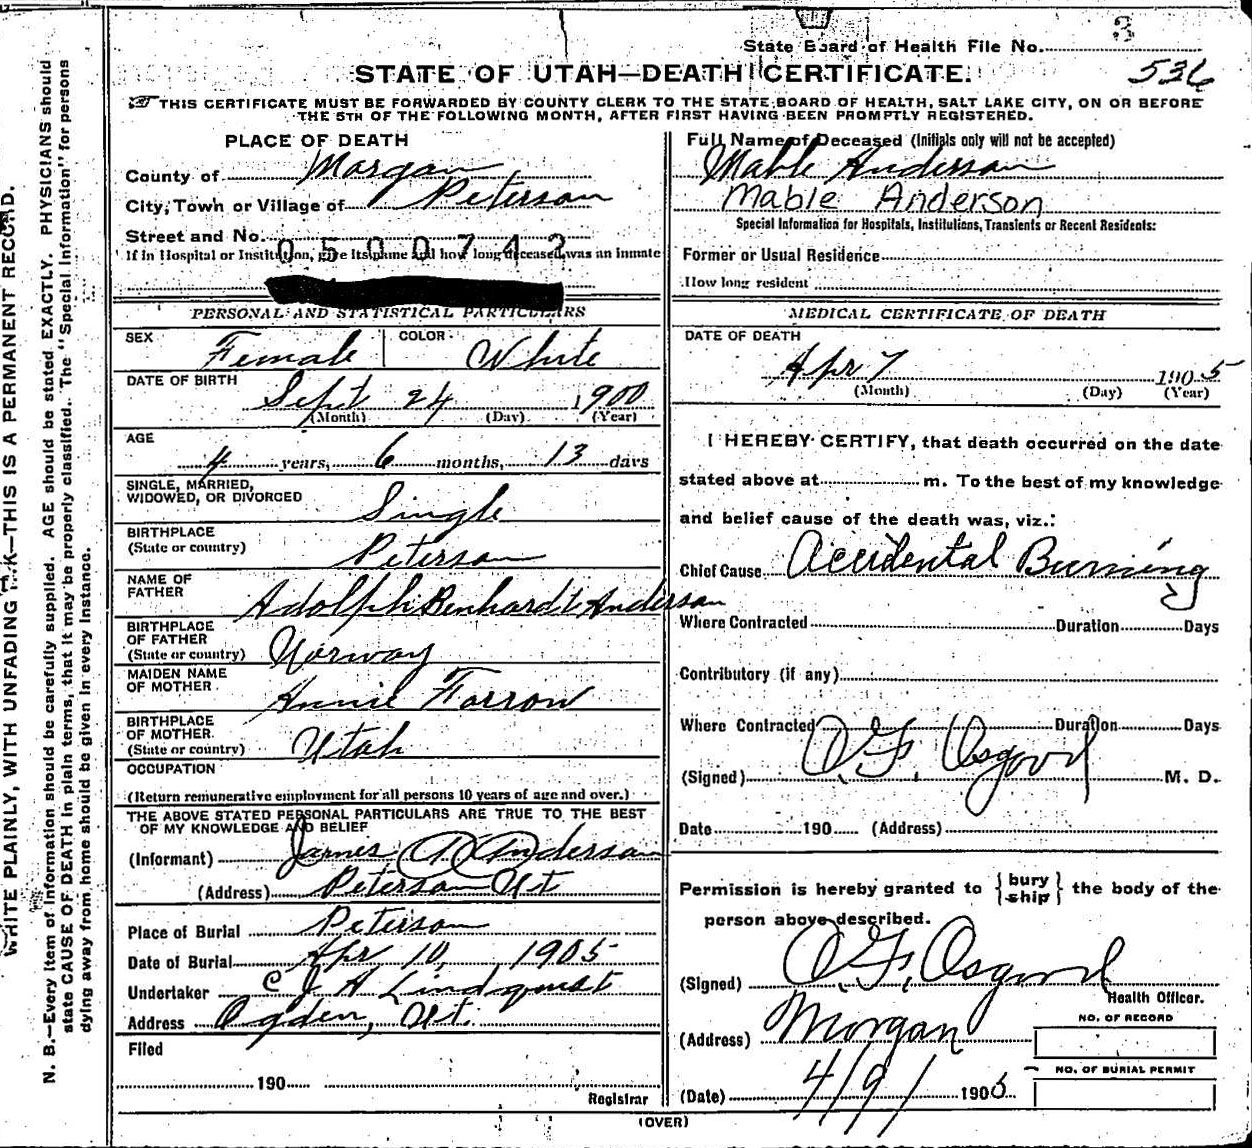 3
State Board of Health File No.
STATE OF UTAH—DEATH CERTIFICATE.
536
THIS CERTIFICATE MUST BE FORWARDED BY COUNTY CLERK TO THE STATE BOARD OF HEALTH, SALT LAKE CITY, ON OR BEFORE
THE 5TH OF THE FOLLOWING MONTH, AFTER FIRST HAVING BEEN PROMPTLY REGISTERED.
WRITE PLAINLY, WITH UNFADING INK—THIS IS A PERMANENT RECORD.
N. B.—Every item of information should be carefully supplied. AGE should be stated EXACTLY. PHYSICIANS should
state CAUSE OF DEATH in plain terms, that it may be properly classified. The "Special Information" for persons
dying away from home should be given in every instance.
PLACE OF DEATH
County of Morgan
City, Town or Village of Peterson
Street and No.
0500742
If in Hospital or Institution, give its name and how long deceased was an inmate
PERSONAL AND STATISTICAL PARTICULARS
SEX Female COLOR White
DATE OF BIRTH Sept 24 1900
(Month) (Day) (Year)
AGE
4 years, 6 months, 13 days
SINGLE, MARRIED,
WIDOWED, OR DIVORCED Single
BIRTHPLACE
(State or country) Peterson
NAME OF
FATHER Adolph Benhardt Anderson
BIRTHPLACE
OF FATHER
(State or country) Norway
MAIDEN NAME
OF MOTHER Annie Farrow
BIRTHPLACE
OF MOTHER
(State or country) Utah
OCCUPATION
(Return remunerative employment for all persons 10 years of age and over.)
THE ABOVE STATED PERSONAL PARTICULARS ARE TRUE TO THE BEST
OF MY KNOWLEDGE AND BELIEF
(Informant) James A. Anderson
(Address) Peterson Ut
Place of Burial Peterson
Date of Burial Apr 10, 1905
Undertaker C J A Lindquist
Address Ogden, Ut.
Filed
190
Registrar
Full Name of Deceased (Initials only will not be accepted)
Mable Anderson
Mable Anderson
Special Information for Hospitals, Institutions, Transients or Recent Residents:
Former or Usual Residence
How long resident
MEDICAL CERTIFICATE OF DEATH
DATE OF DEATH
Apr 7 1905
(Month) (Day) (Year)
I HEREBY CERTIFY, that death occurred on the date
stated above at m. To the best of my knowledge
and belief cause of the death was, viz.:
Chief Cause Accidental Burning
Where Contracted Duration Days
Contributory (if any)
Where Contracted Duration Days
(Signed) O. F. Osgood M. D.
Date 190 (Address)
Permission is hereby granted to {bury ship} the body of the
person above described.
(Signed) O. F. Osgood
Health Officer.
(Address) Morgan
NO. OF RECORD
NO. OF BURIAL PERMIT
(Date) 4/9/1905
(OVER)